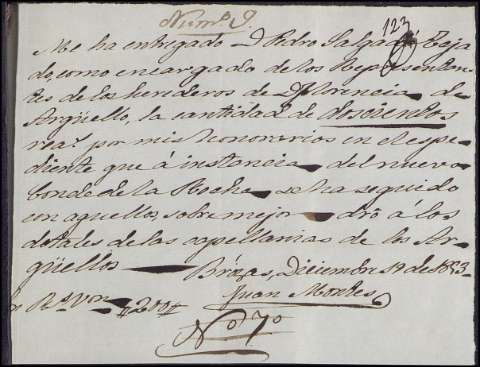 Num.º 9.
123
Me ha entregado D. Pedro Salgado Taja
do, como encargado de los Representan
tes de los herederos de D. Florencia de
Argüello, la cantidad de doscientos
rea.s por mis honorarios en el espe-
diente que á instancia del nuevo
Conde de la Rocha se ha seguido
con aquellos, sobre mejor dró á los
dotales de las capellanias de los Ar-
güellos Brozas, Diciembre 19 de 1853
Juan Montes
R.s von #200#
N.º 7.º